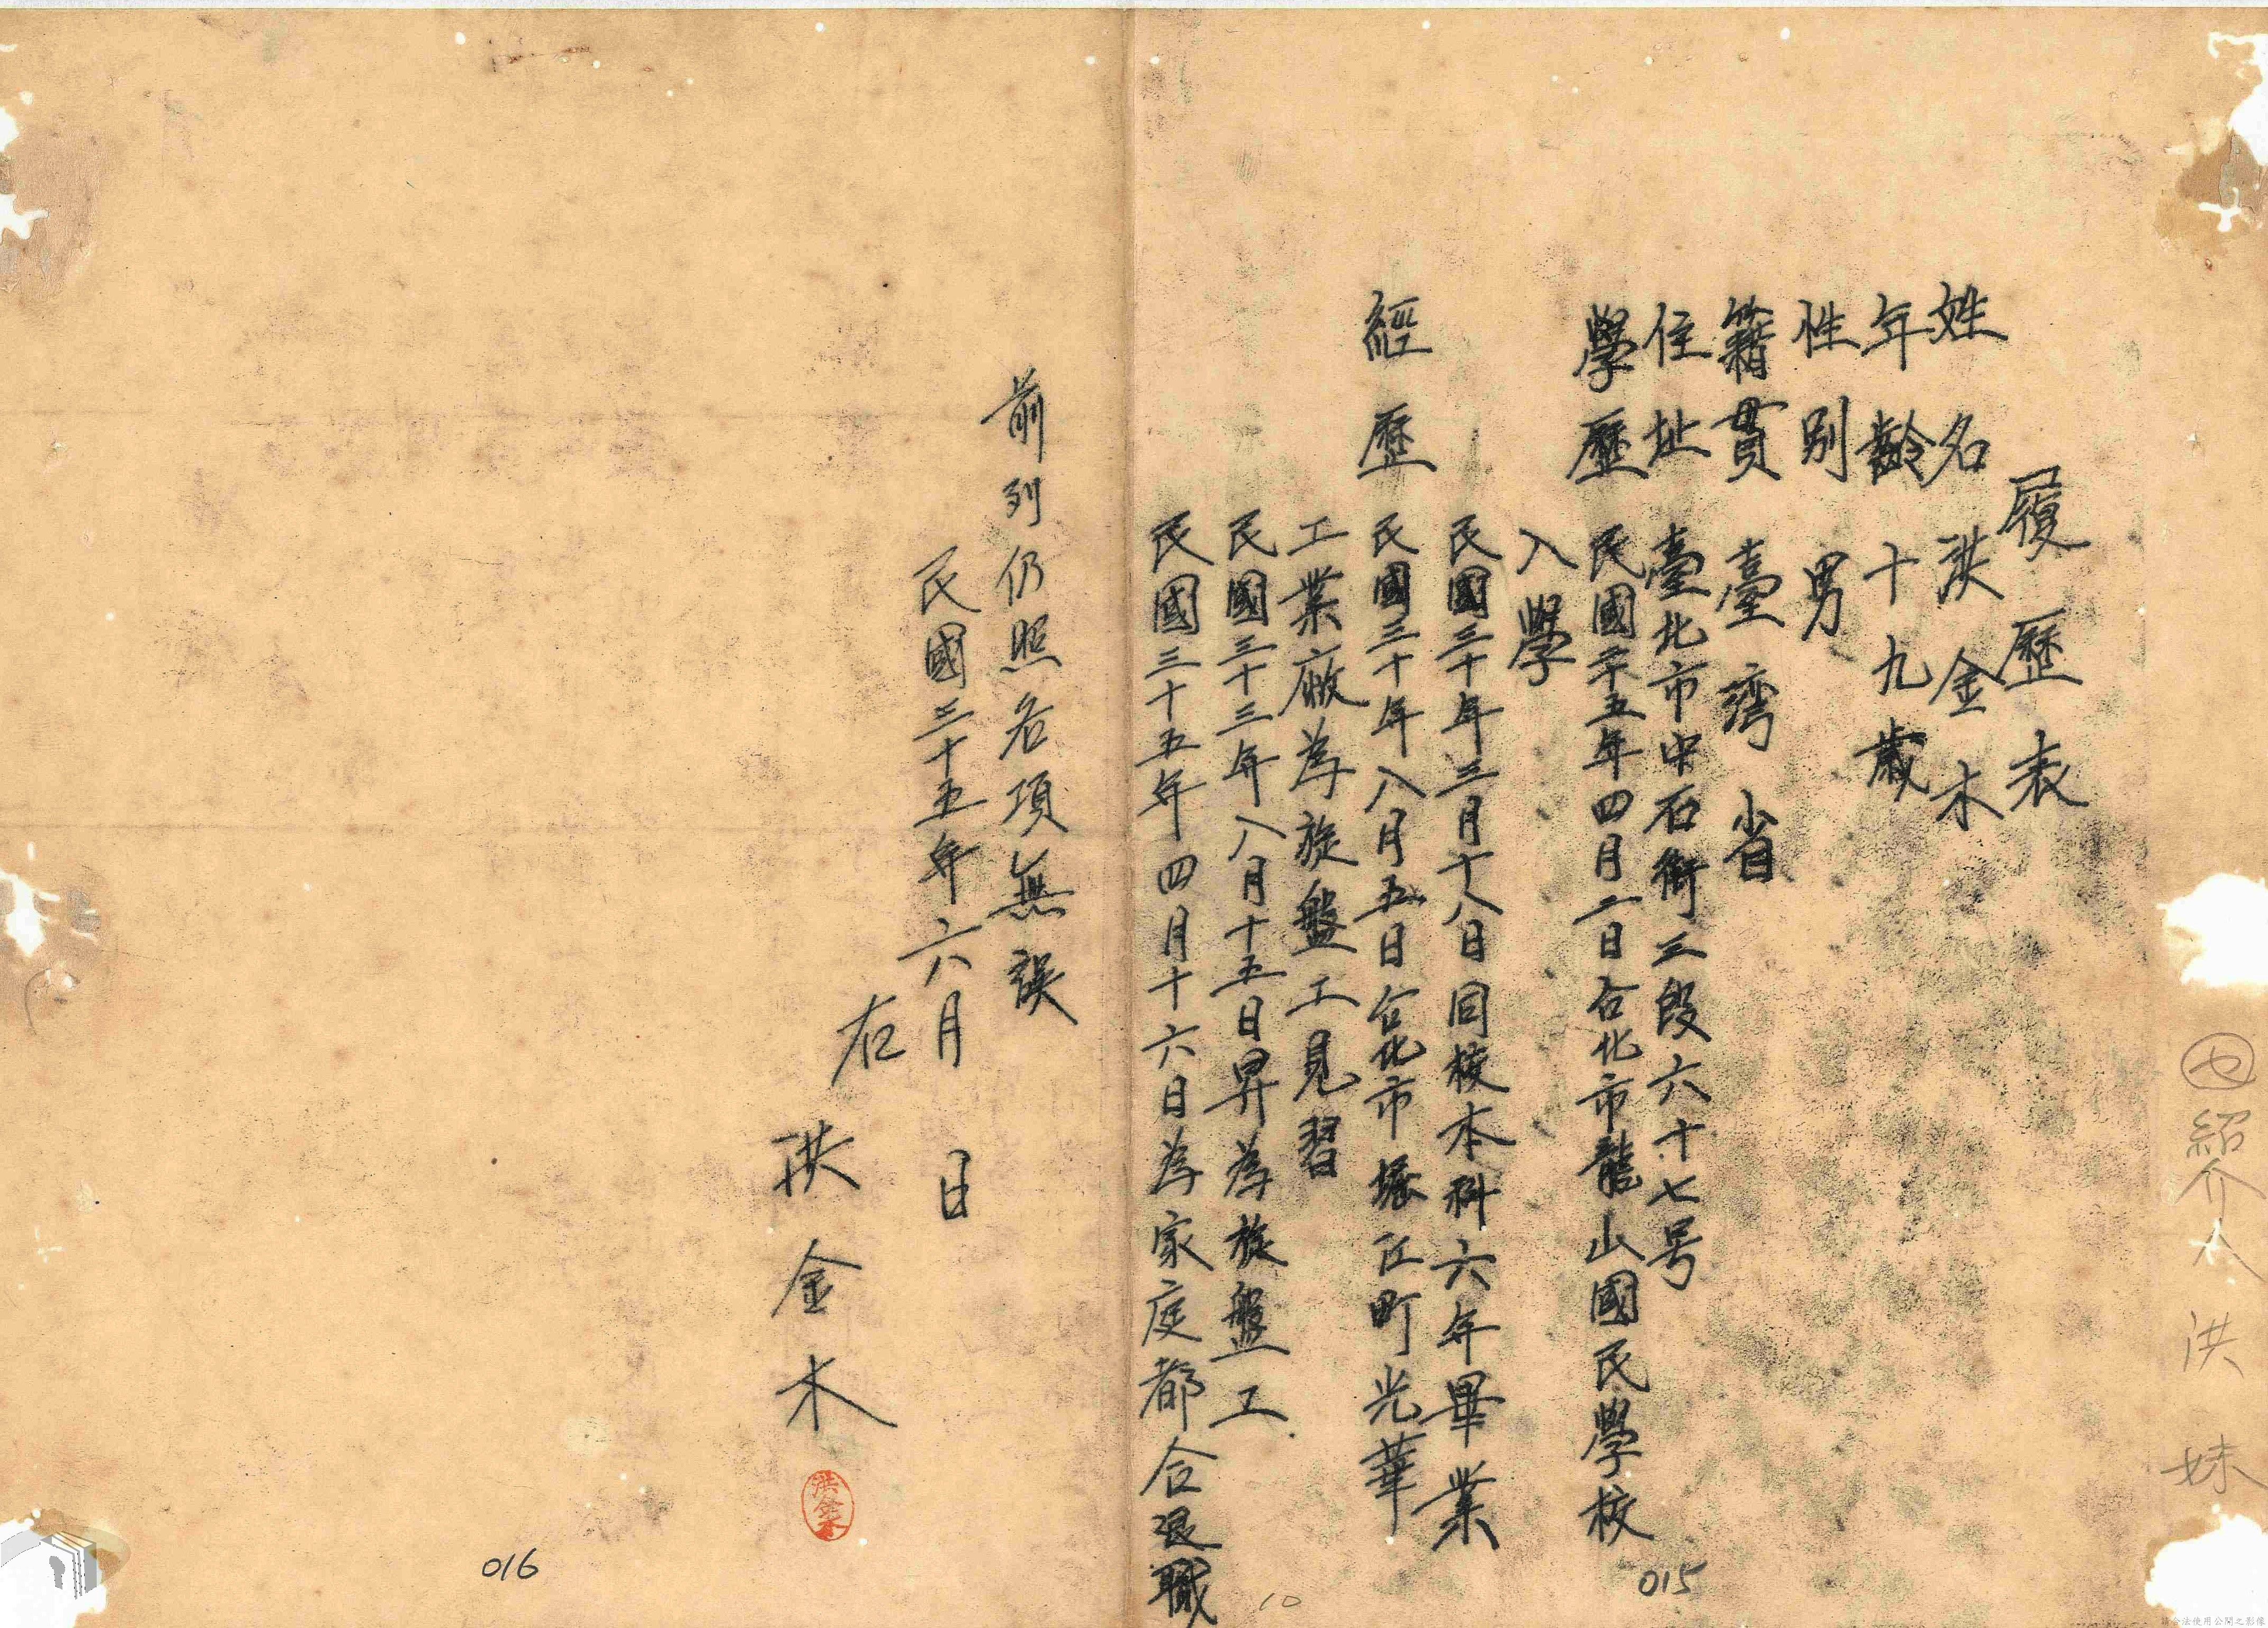 履歷表
姓名 洪金木
年齡 十九歲
性別 男
籍貫 臺灣省
住址 臺北市中石街三段六十七号
學歷 民國二十五年四月二日台北市龍山國民學校
入學
民國三十年三月十八日同校本科六年畢業
經歷 民國三十年八月五日台北市堀江町光華
工業廠為旋盤工見習
民國三十三年八月十五日昇為旋盤工.
民國三十五年四月十六日為家庭都合退職
前列仍照各項無誤
民國三十五年六月 日
右 洪金木
洪金木
七 紹介人 洪妹
015
10
016
請合法使用公開之影像